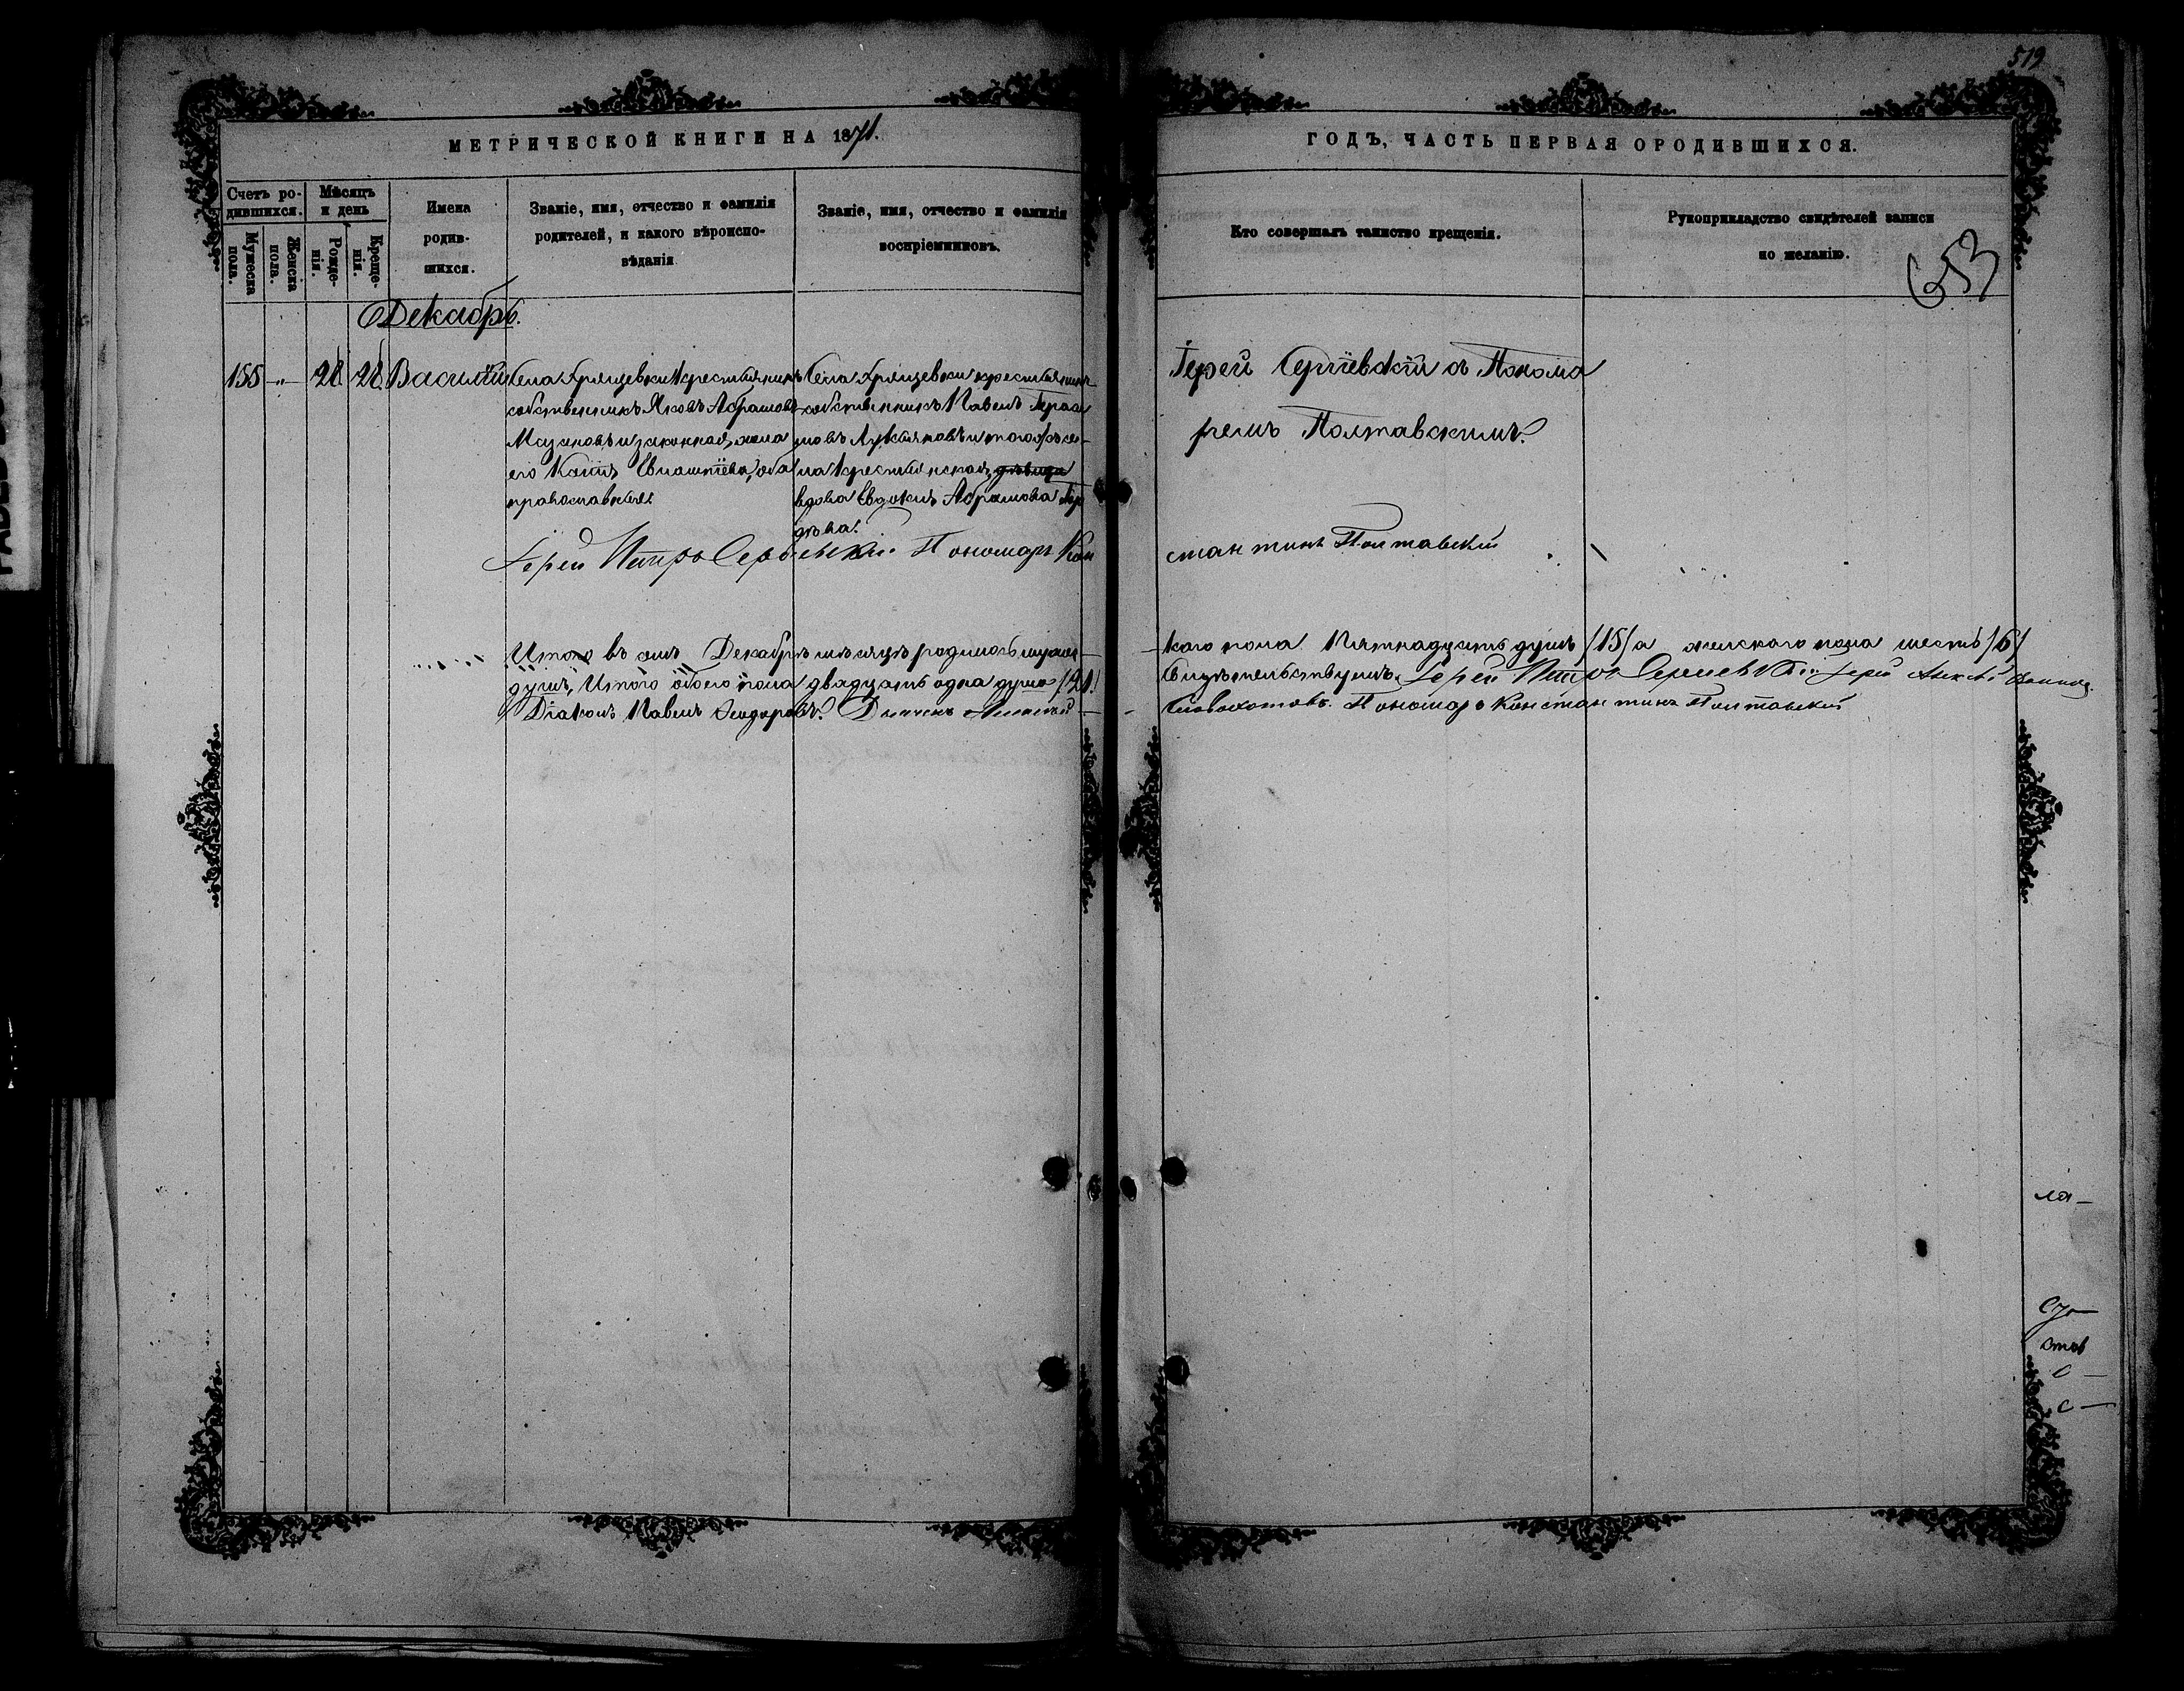 519
МЕТРИЧЕСКОЙ КНИГИ НА 1871.
ГОДЪ, ЧАСТЬ ПЕРВАЯ ОРОДИВШИХСЯ.
Счетъ ро-
дившихся.
Мужеска
пола.
Женска
пола.
Мѣсяцъ
и день
Рожде-
нія.
Креще-
нія.
Имена
родив-
шихся.
Званіе, имя, отчество и фамилія
родителей, и какого вѣроиспо-
вѣданія
Званіе, имя, отчество и фамилія
воспріемниковъ.
Кто совершалъ таинство крещенія.
Рукоприкладство свидѣтелей записи
по желанію.
653
Декабрь.
155 -"- 28 28 Василій
Села Хрящевки Крестьянинъ
собственникъ Яковъ Абрамовъ
и законная жена
его Евлампіева, оба
православные.
Села Хрящевки крестьянинъ
собственникъ Павелъ Гераси
мовъ Лукьяновъ и тогоже се-
ла Крестьянская девица
вдова Евдокия Абрамова
дѣва.
Іерей Сергіевскій съ Понома
ремъ Полтавскимъ.
Іерей Петръ Сергіевскій Пономарь Кон
стантинъ Полтавскій
Итого въ семъ Декабрѣ мѣсяцѣ родилось мужес-
каго пола Пятнадцать душъ /15/ а женскаго пола шесть /6/
душъ, Итого обоего пола двадцать одна душа /21/
Свидѣтельствуемъ. Іерей Петръ Сергіевскій Іерей Алексѣй
Діаконъ Павелъ Ѳеодоровъ. Дьячекъ
Словохотовъ. Пономарь Константинъ Полтавскій
ла-
с -
с -